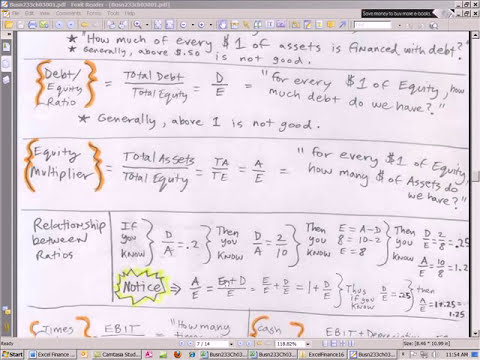 Busn233ch03001.pdf - Foxit Reader - [Busn233ch03001.pdf]
Save money to buy more e-books.
* "How much of every $1 of assets is financed with debt?"
* Generally, above $.50 is not good.
{Debt/ Equity Ratio} = Total Debt / Total Equity = D/E = "for every $1 of Equity, how much debt do we have?"
* Generally, above 1 is not good.
{Equity Multiplier} = Total Assets / Total Equity = TA/TE = A/E = "for every $1 of Equity, how many $ of Assets do we have?"
Relationship between Ratios
If you know } D/A = .2 } Then you know } D/A = 2/10 } Then you know E = A-D 8 = 10-2 E = 8 } Then you know D/E = 2/8 = .25 A/E = 10/8 = 1.2
Notice ⇒ A/E = E+D/E = E/E + D/E = 1 + D/E } Thus if you know D/E = .25 } then A/E = 1+.25 = 1.25
{Times EBIT "How many
{Cash EBIT + Depreciation
7 / 14
118.82%
Size: [8.46 * 10.99 in]
start
ExcelFinance
Camtasia Studio
Busn233Ch03
Busn233ch03001.pdf
ExcelFinance16
11:54 AM